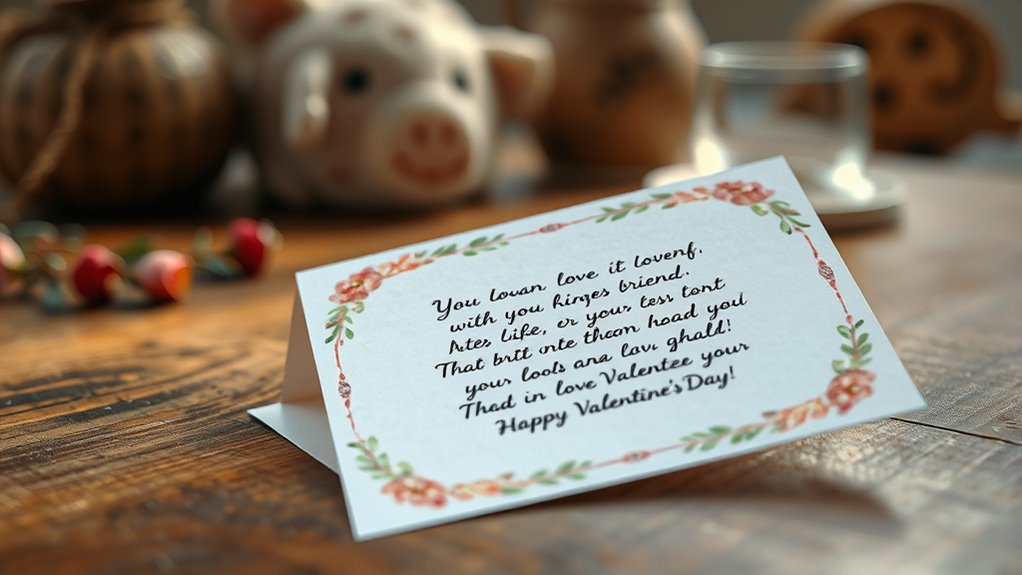 You lovan love it lovenf,
with you hinges briend.
Ates life, er your tess tont
That britt onte thcan hoad you
your lools ana lavi ghald!
Thad in love Valentee your
Happy Valentine's Day!